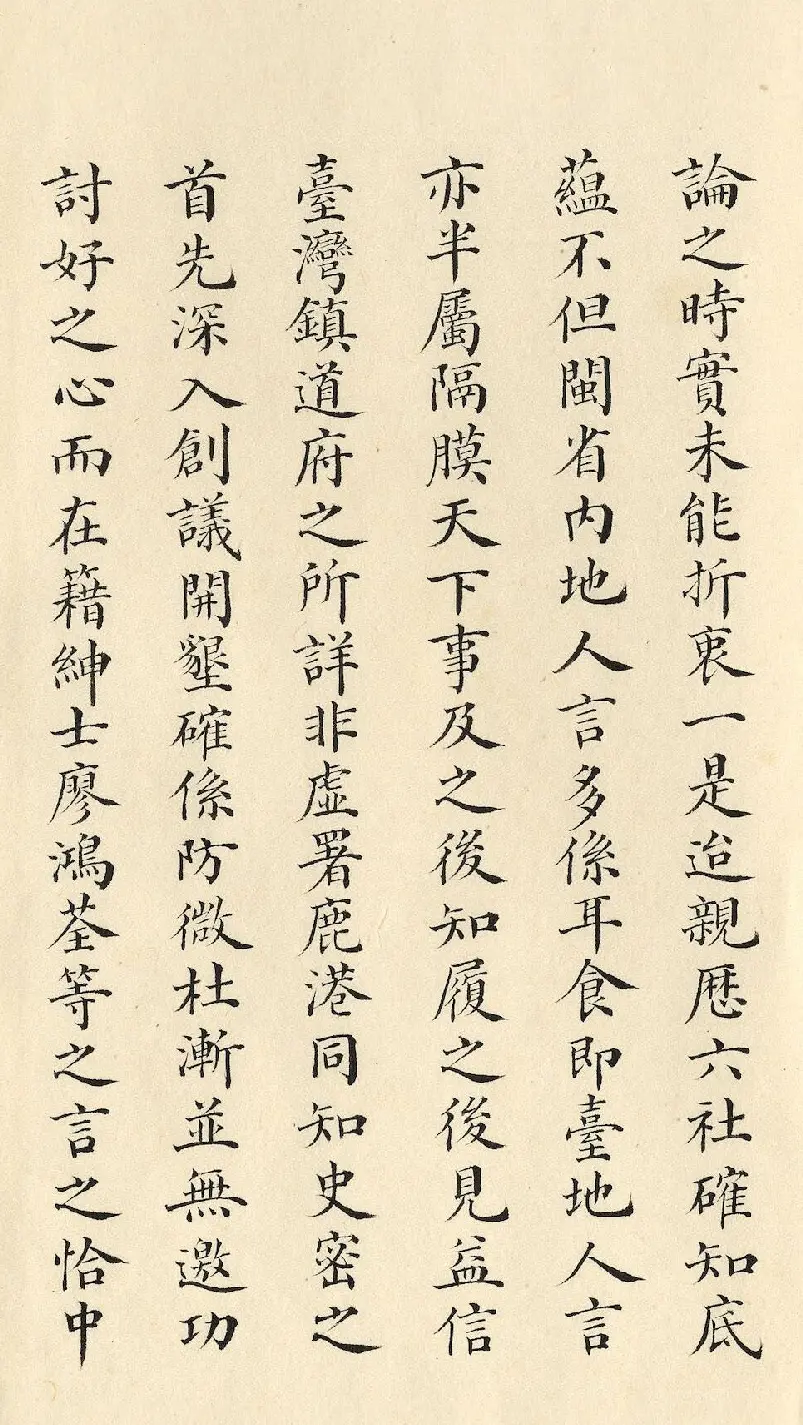 論之時實未能折衷一是迨親歷六社確知底
蘊不但閩省內地人言多係耳食即臺地人言
亦半屬隔膜天下事及之後知履之後見益信
臺灣鎮道府之所詳非虛署鹿港同知史密之
首先深入創議開墾確係防微杜漸並無邀功
討好之心而在籍紳士廖鴻荃等之言之恰中